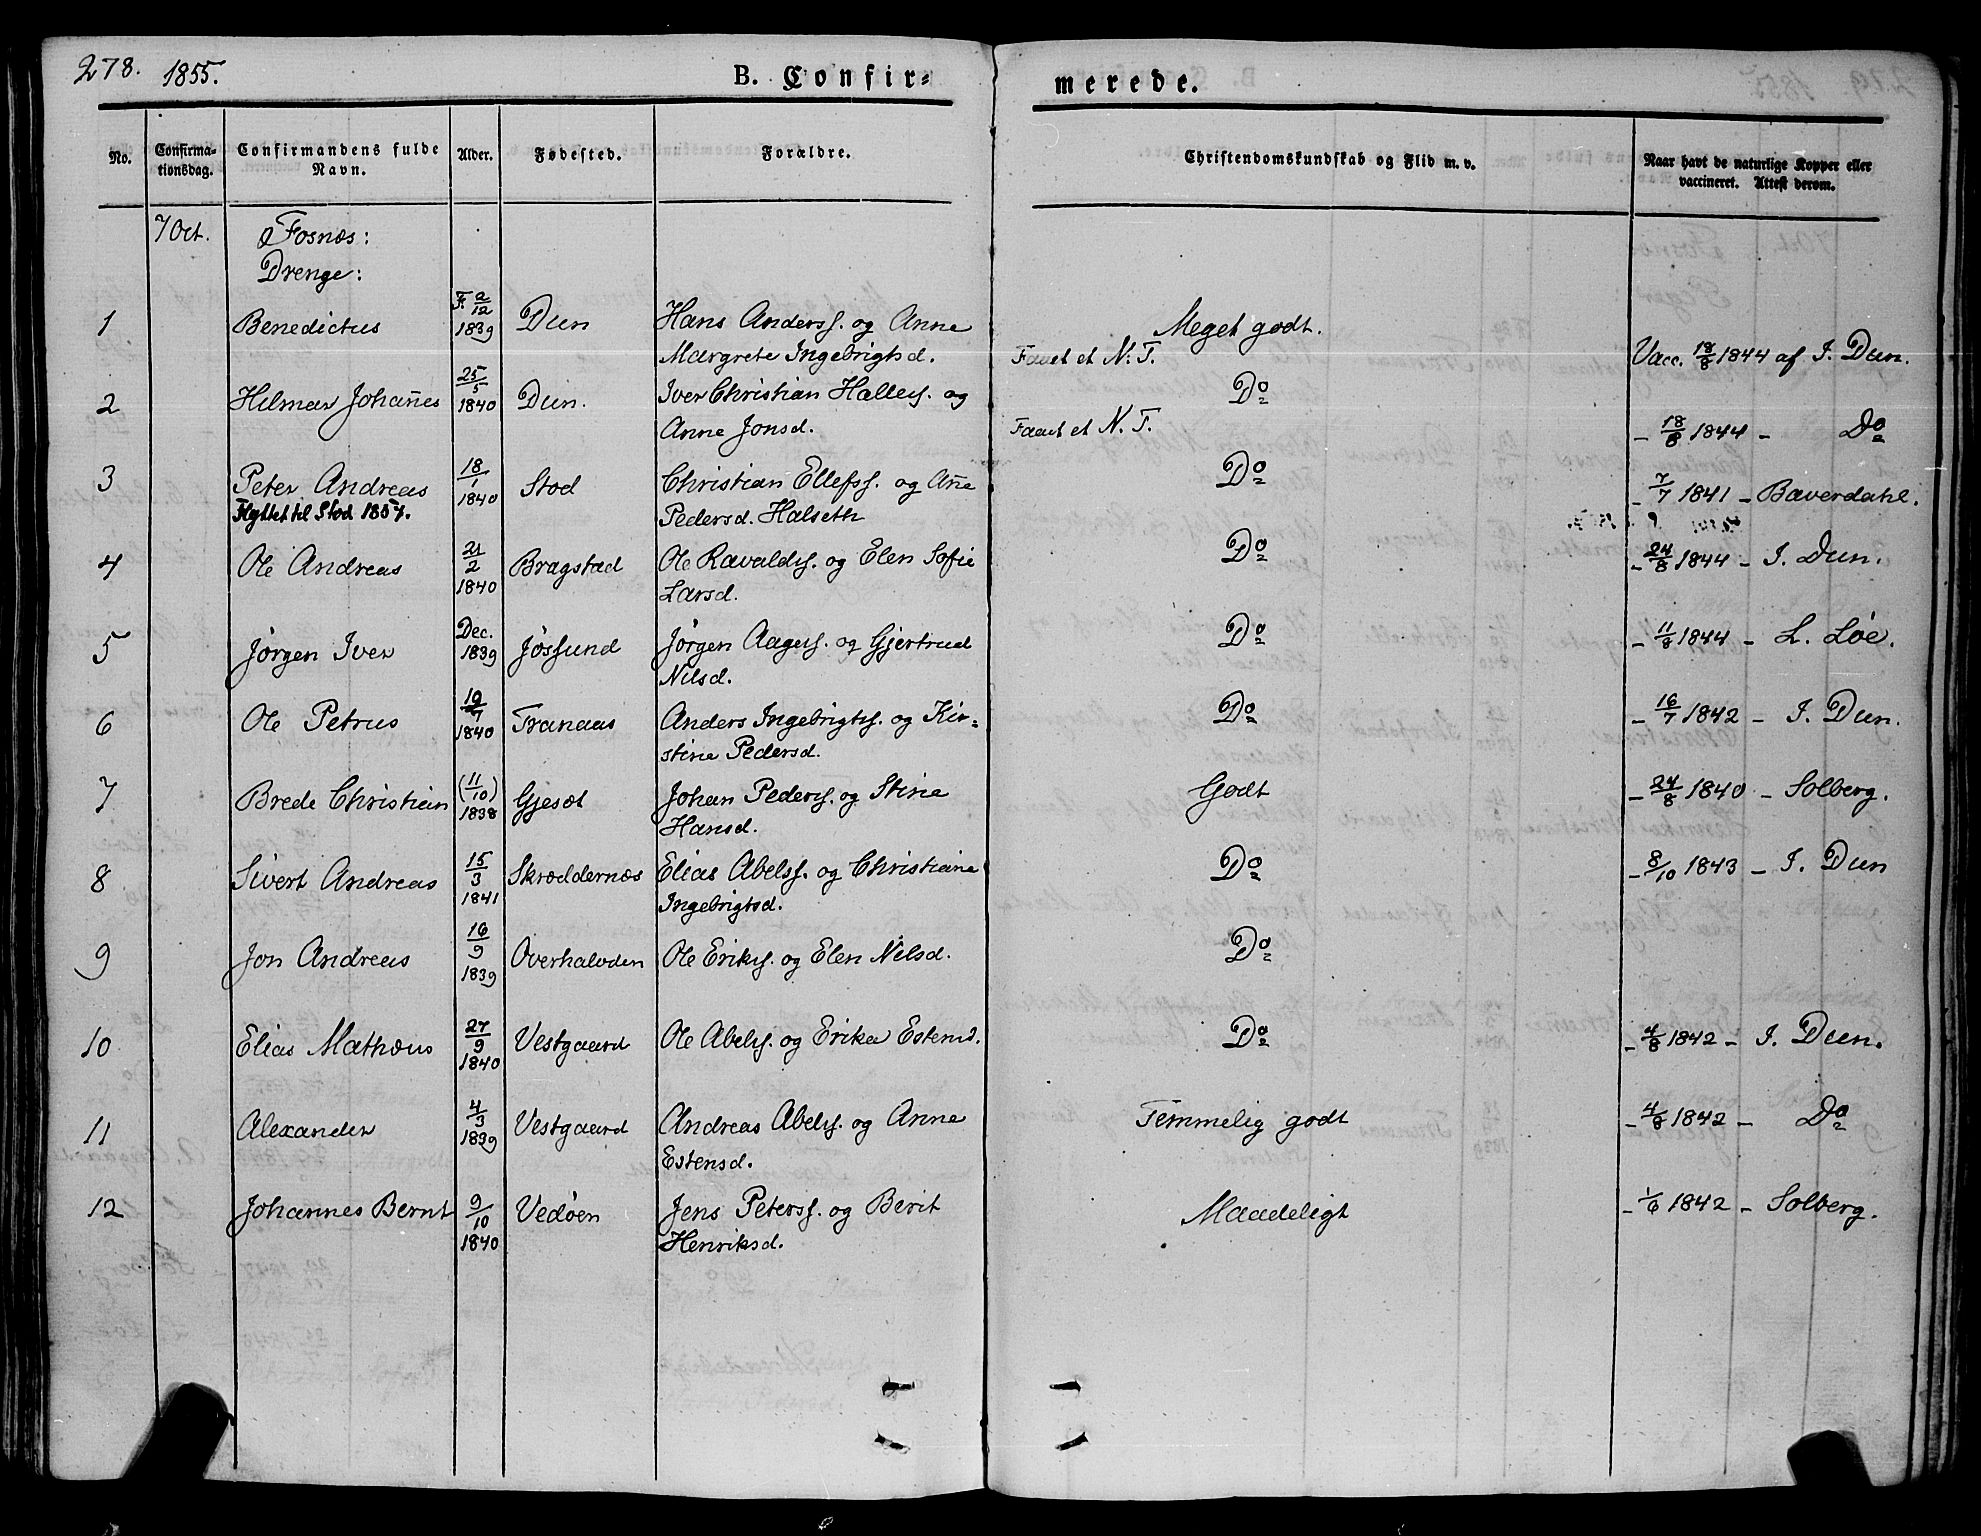 278. 1855.
B. Confir=
merede.
No.
Confirma-
tionsdag.
Confirmandens fulde
Navn.
Alder.
Fødested.
Forældre.
Christendomskundskab og Flid m. v.
Naar havt de naturlige Kopper eller
vaccineret. Attest derom.
7 Oct. Fosnæs:
Drenge:
1 Benedictus F. 2/12 1839 Dun Hans Anderss. og Anne
Margrete Ingebrigtsd.
Meget godt.
Faaet et N. T.
Vacc. 18/8 1844 af I. Dun.
2 Hilmar Johan̄es 25/5 1840 Dun. Iver Christian Halless. og
Anne Jonsd.
Do
Faaet et N. T.
- 18/8 1844 - Do
3 Peter Andreas 18/1 1840 Stod Christian Ellefss. og An̄e
Flyttet til Stod 1857.
Pedersd. Halseth
Do
- 7/7 1841 - Baverdahl.
4 Ole Andreas 21/2 1840 Bragstad Ole Ravalds. og Elen Sofie
Larsd.
Do
- 24/8 1844 - I. Dun.
5 Jørgen Iver Dec. 1839 Jøssund Jørgen Aages. og Gjertrud
Nilsd.
Do
- 11/8 1844 - L. Løe.
6 Ole Petrus 10/7 1840 Tranaas Anders Ingebrigts. og Kir=
stine Pedersd.
Do
- 16/7 1842 - I. Dun.
7 Brede Christian (11/10) 1838 Gjesæt Johan Peders. og Stine
Hansd.
Godt
- 24/8 1840 - Solberg.
8 Sivert Andreas 15/3 1841 Skræddernæs Elias Abelss. og Christiane
Ingebrigtsd.
Do
- 8/10 1843 - I. Dun
9 Jon Andreas 16/9 1839 Overhalvden Ole Eriks. og Elen Nilsd.
Do
10 Elias Mathæus 27/9 1840 Vestgaard Ole Abels. og Erika Estensd.
Do
- 4/8 1842 - I. Dun.
11 Alexander 4/3 1839 Vestgaard Andreas Abels. og Anne
Estensd.
Temmelig godt
- 4/8 1842 - Do
12 Johannes Bernt 9/10 1840 Vedøen Jens Peterss. og Berit
Henriksd.
Maadeligt
- 1/6 1842 - Solberg.